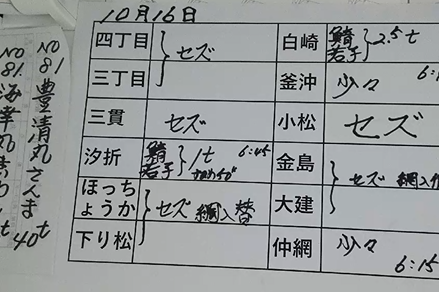 10月16日
四丁目 セズ 白崎 鯖 若子 2.5t
三丁目 釜沖 少々
三貫 セズ 小松 セズ
汐折 鯖 若子 1t 6:45 金島 セズ 綱入
ほっちょうか セズ 綱入替 大建
下り松 仲網 少々 6:15
NO 81 豊清丸さんま 40t
NO 81